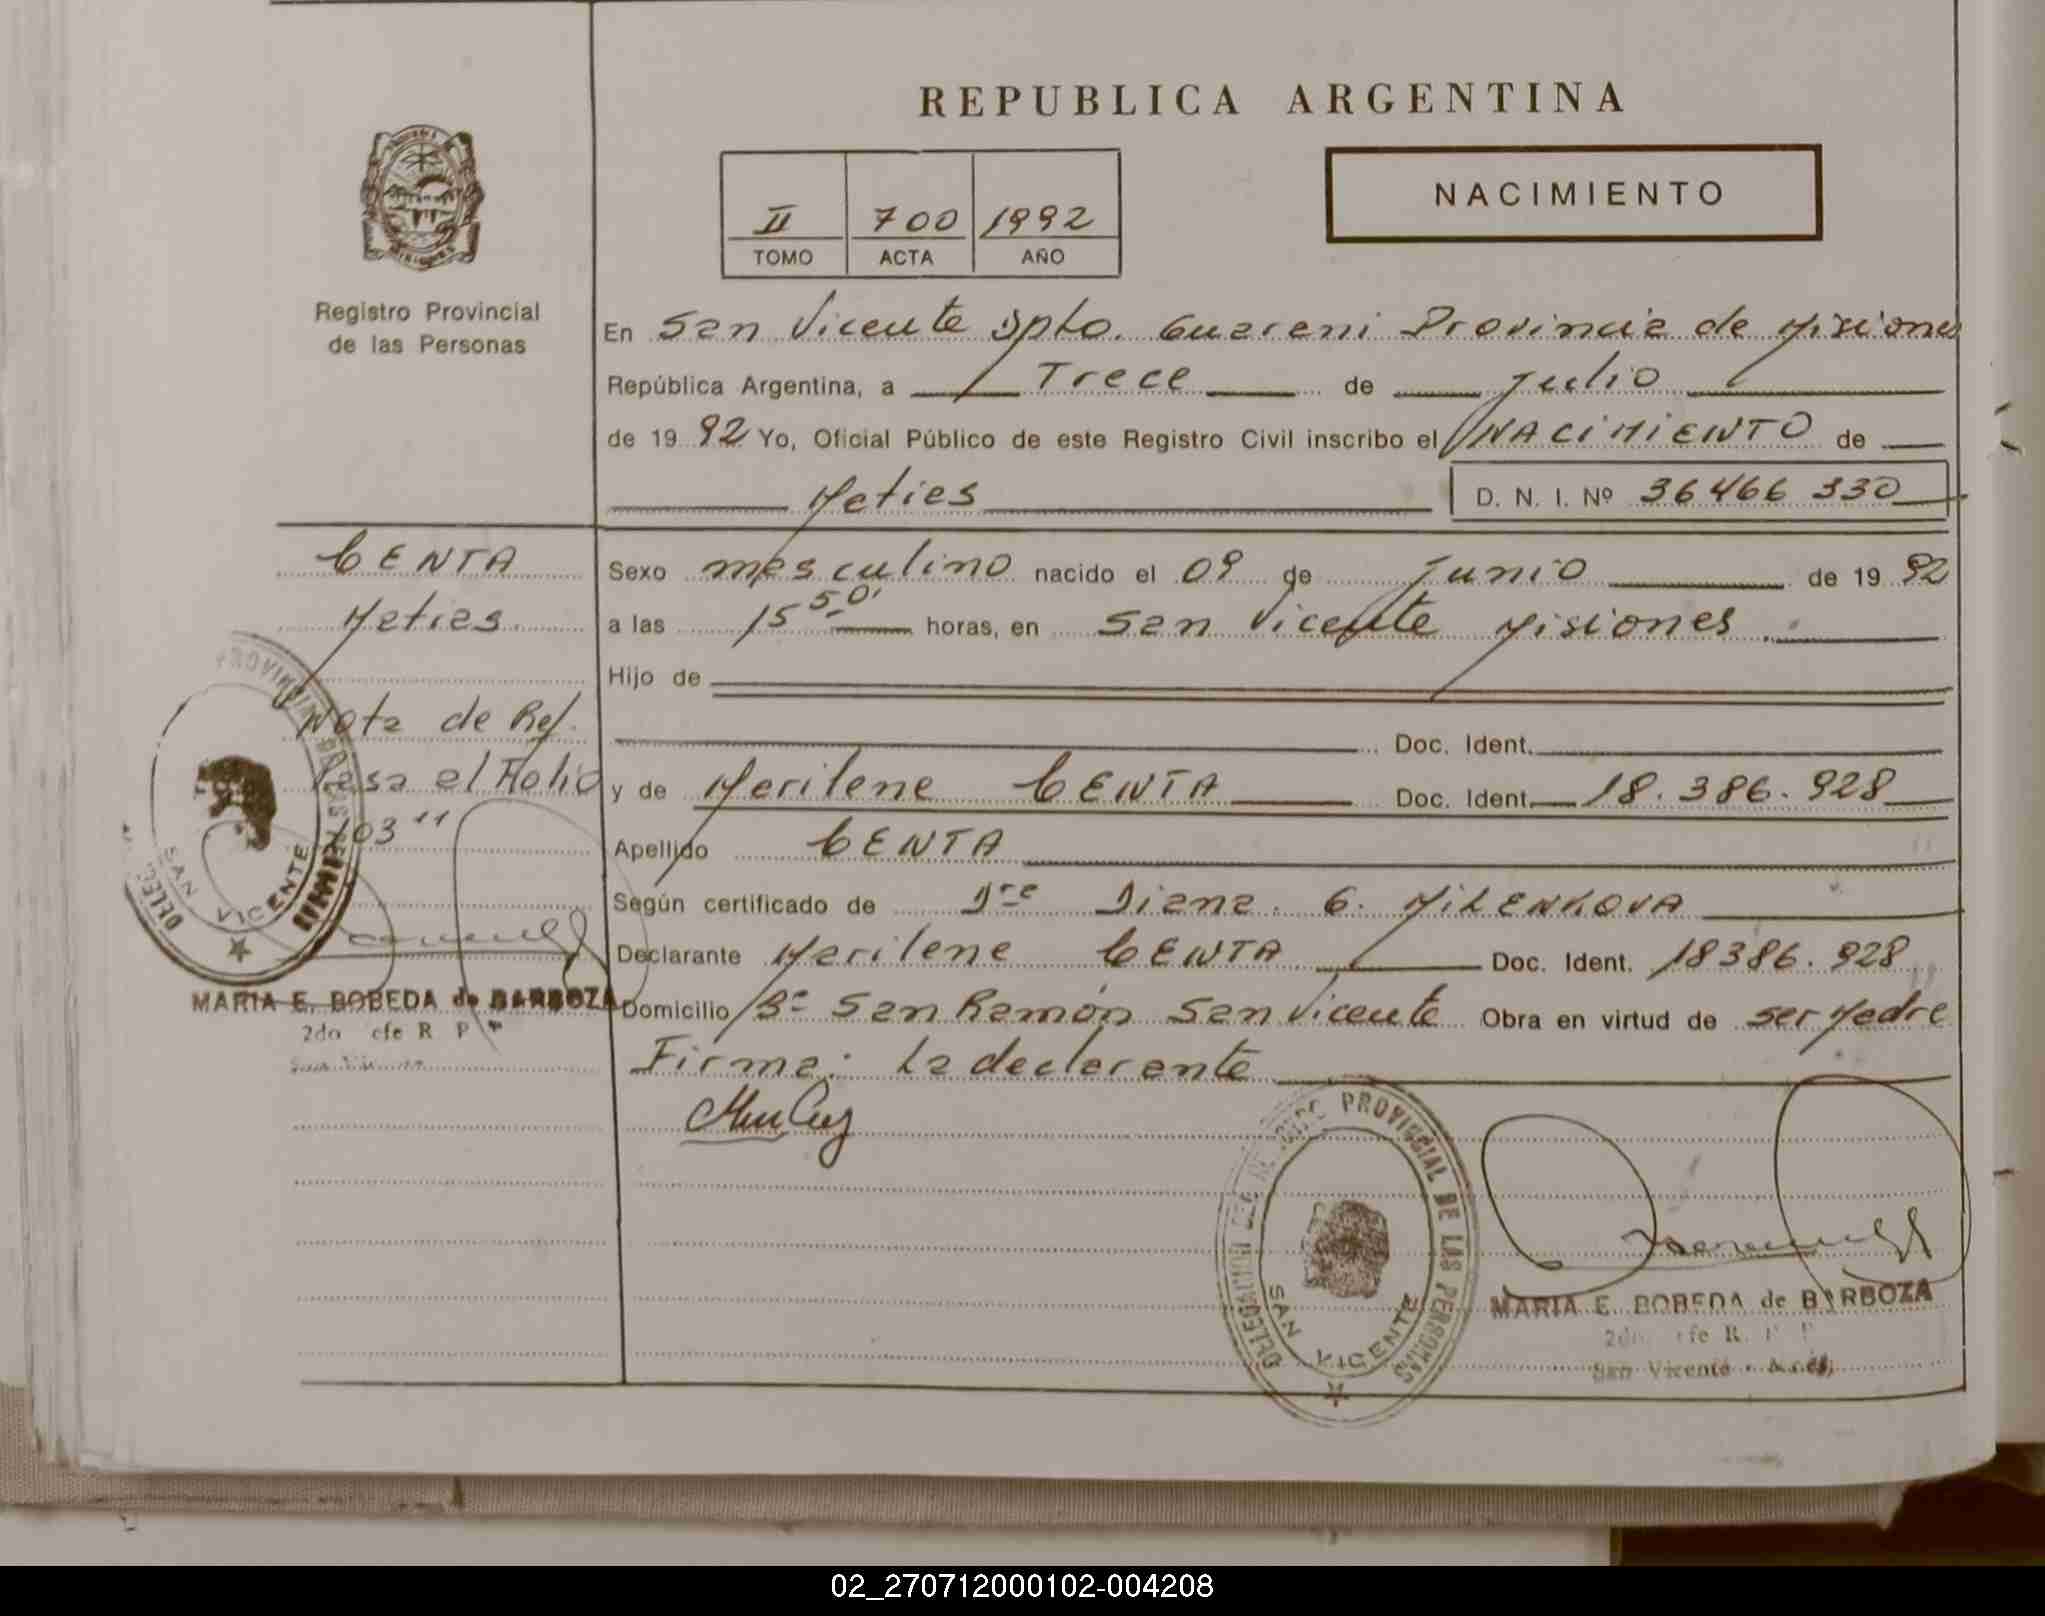 REPUBLICA ARGENTINA
NACIMIENTO
II 700 1992
TOMO ACTA AÑO
Registro Provincial
de las Personas
En San Vicente Dpto. Guarani Provincia de Misiones
República Argentina, a Trece de Julio
de 1992 Yo, Oficial Público de este Registro Civil inscribo el NACIMIENTO de
Matias D. N. I. Nº 36466 330
CENTA
Matias
Nota de Ref.
Pasa al Folio
103"
Sexo masculino nacido el 09 de Junio de 1992
a las 15 50' horas, en San Vicente Misiones.
Hijo de
Doc. Ident.
y de Marilene CENTA Doc. Ident. 18.386.928
Apellido CENTA
Según certificado de Dra Diana. G. MILENKOVA
Declarante Marilene CENTA Doc. Ident. 18386.928
Domicilio Bº San Ramón San Vicente Obra en virtud de ser Madre
Firma: La declarante
MARIA E. BOBEDA de BARBOZA
2do efe R P
San Vicente
DELEGACION DEL REGISTRO PROVINCIAL DE LAS PERSONAS
SAN VICENTE
MARIA E. BOBEDA de BARBOZA
2do efe R. P
San Vicente
02_270712000102-004208